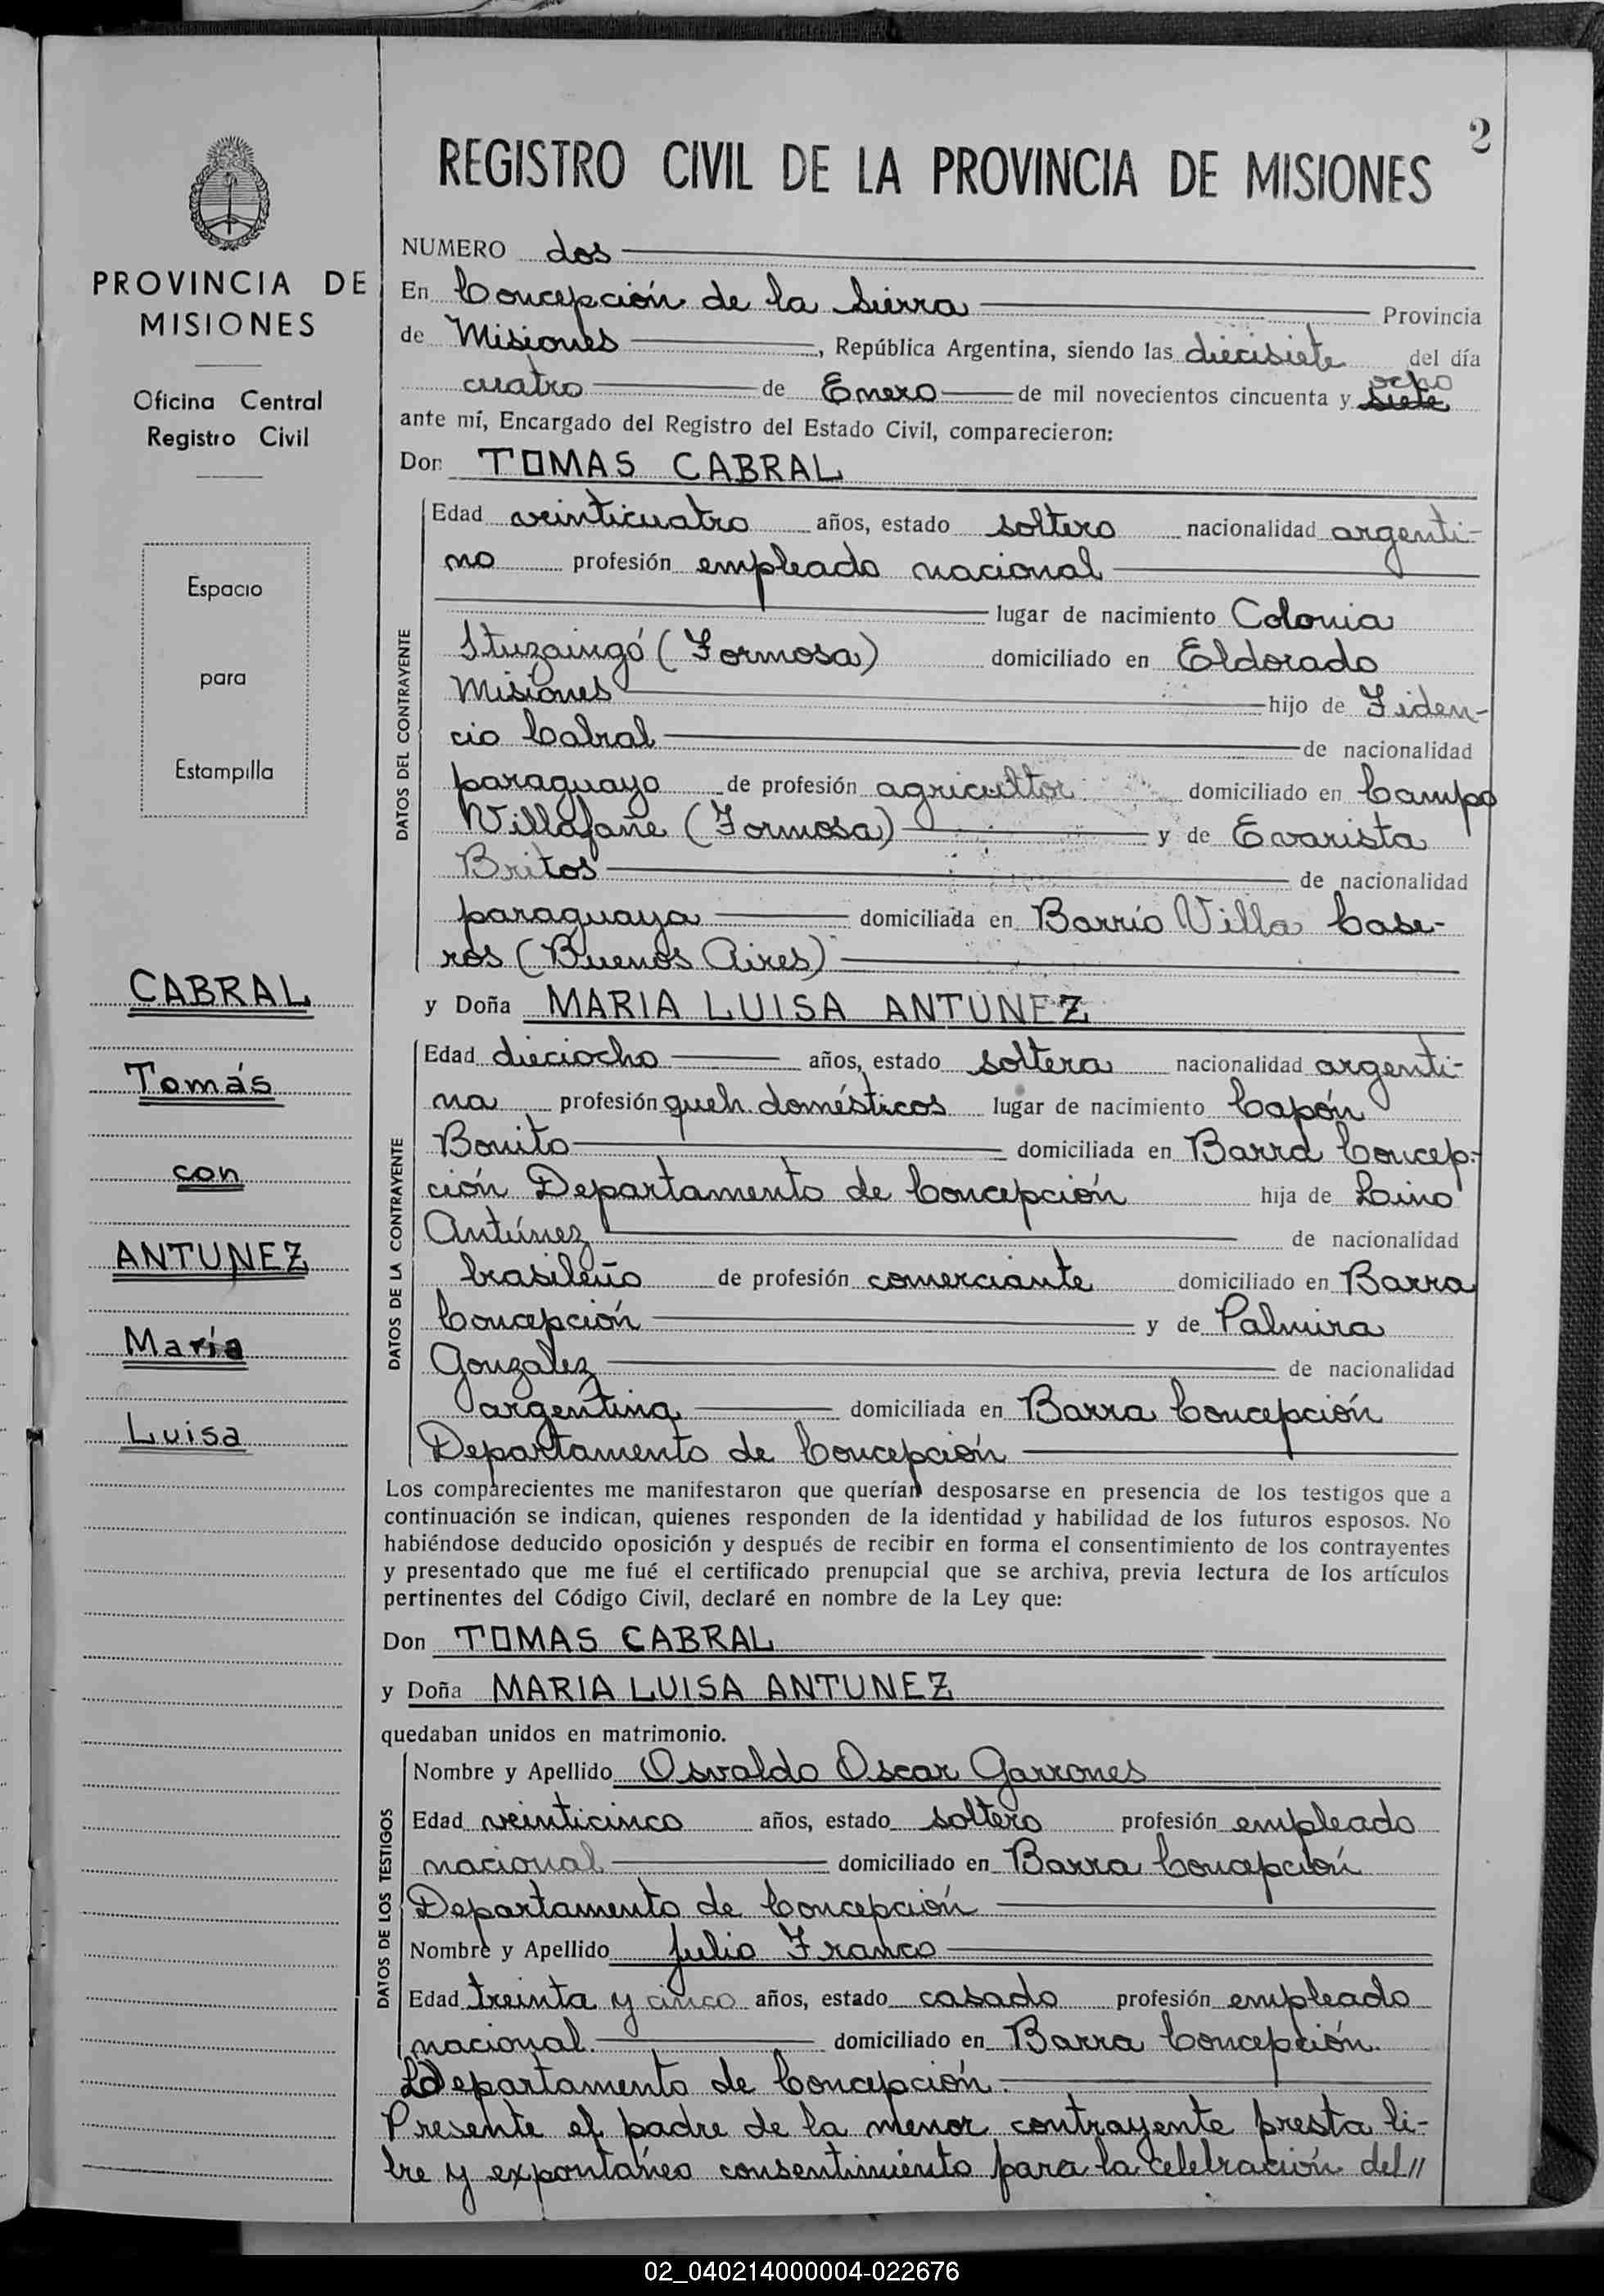 2
REGISTRO CIVIL DE LA PROVINCIA DE MISIONES
PROVINCIA DE
MISIONES
Oficina Central
Registro Civil
Espacio
para
Estampilla
CABRAL
Tomás
con
ANTUNEZ
María
Luisa
NUMERO dos
En Concepción de la Sierra Provincia
de Misiones, República Argentina, siendo las diecisiete del día
ocho
cuatro de Enero de mil novecientos cincuenta y siete
ante mí, Encargado del Registro del Estado Civil, comparecieron:
Don TOMAS CABRAL
DATOS DEL CONTRAYENTE
Edad veinticuatro años, estado soltero nacionalidad argenti-
no profesión empleado nacional
lugar de nacimiento Colonia
Ituzaingó (Formosa) domiciliado en Eldorado
Misiones hijo de Fiden-
cio Cabral de nacionalidad
paraguayo de profesión agricultor domiciliado en Campo
Villafañe (Formosa) y de Evarista
Britos de nacionalidad
paraguaya domiciliada en Barrio Villa Case-
ros (Buenos Aires)
y Doña MARIA LUISA ANTUNEZ
DATOS DE LA CONTRAYENTE
Edad dieciocho años, estado soltera nacionalidad argenti-
na profesión queh. domésticos lugar de nacimiento Capón
Bonito domiciliada en Barra Concep-
ción Departamento de Concepción hija de Laino
Antúnez de nacionalidad
brasileño de profesión comerciante domiciliado en Barra
Concepción y de Palmira
Gonzalez de nacionalidad
argentina domiciliada en Barra Concepción
Departamento de Concepción
Los comparecientes me manifestaron que querían desposarse en presencia de los testigos que a
continuación se indican, quienes responden de la identidad y habilidad de los futuros esposos. No
habiéndose deducido oposición y después de recibir en forma el consentimiento de los contrayentes
y presentado que me fué el certificado prenupcial que se archiva, previa lectura de los artículos
pertinentes del Código Civil, declaré en nombre de la Ley que:
Don TOMAS CABRAL
y Doña MARIA LUISA ANTUNEZ
quedaban unidos en matrimonio.
DATOS DE LOS TESTIGOS
Nombre y Apellido Osvaldo Oscar Garrones
Edad veinticinco años, estado soltero profesión empleado
nacional domiciliado en Barra Concepción
Departamento de Concepción
Nombre y Apellido Julio Franco
Edad treinta y cinco años, estado casado profesión empleado
nacional. domiciliado en Barra Concepción.
Departamento de Concepción.
Presente el padre de la menor contrayente presta li-
bre y expontáneo consentimiento para la celebración del //
02_040214000004-022676